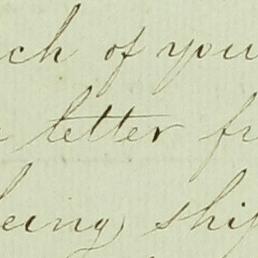 ch of you
letter fr
eing ship